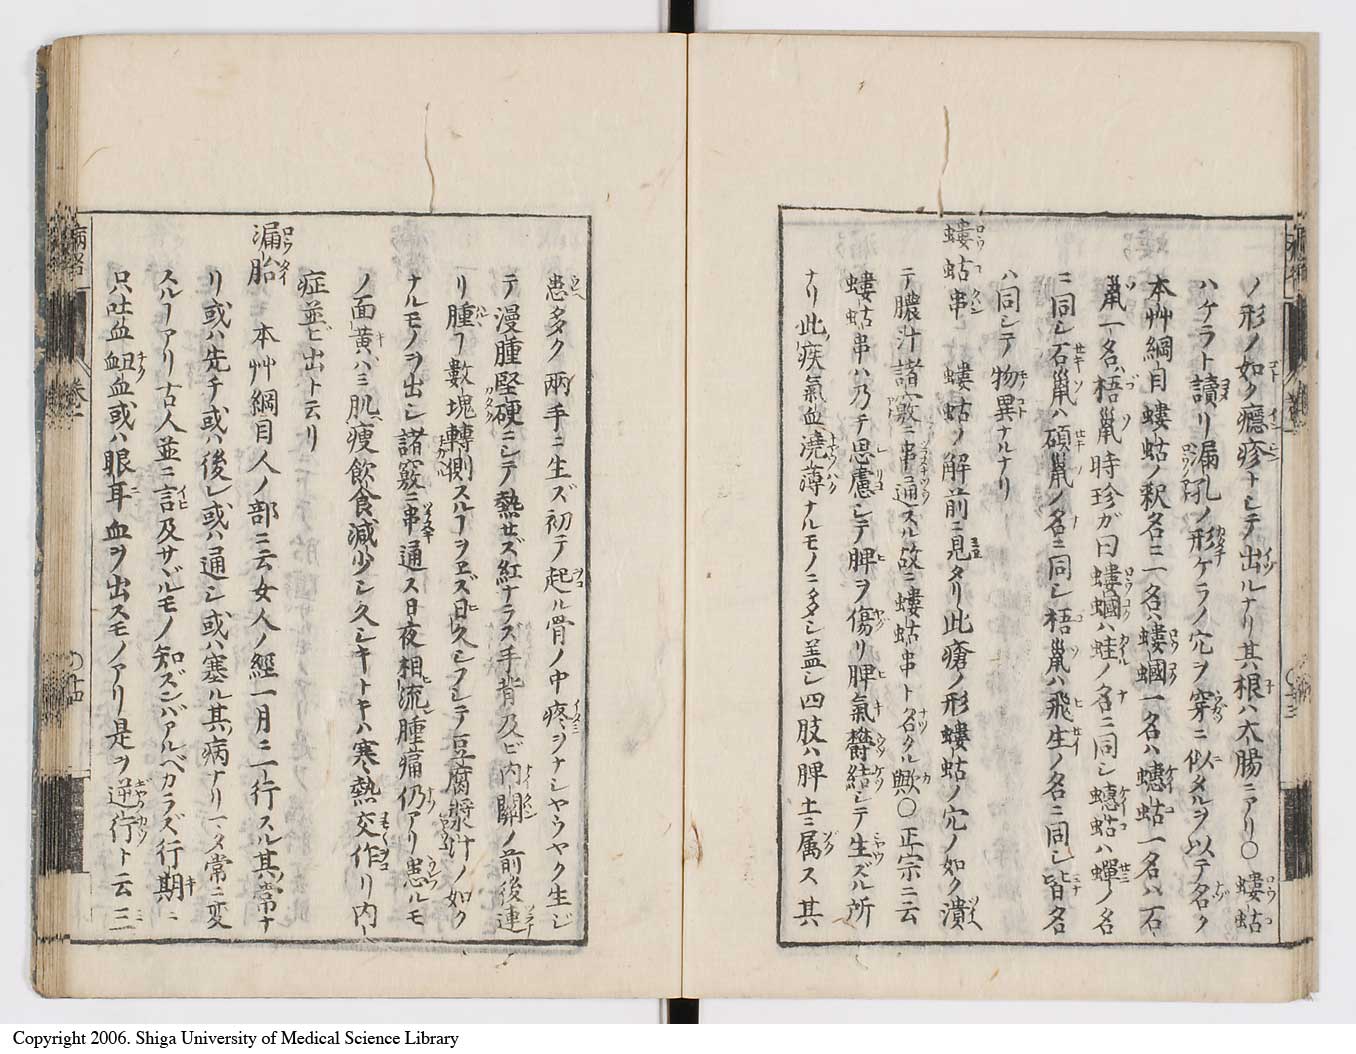 ノ形ノ如ク癮疹ナシテ出ルナリ其根ハ大腸ニアリ○螻蛄
ハケラト讀リ漏孔ノ形ケラノ穴ヲ穿ニ似タルヲ以テ名ク
本艸綱目螻蛄ノ釈名ニ一名ハ螻蟈一名ハ蟪蛄一名ハ石
鼠一名ハ梧鼠時珍ガ曰螻蟈ハ蛙ノ名ニ同シ蟪蛄ハ蟬ノ名
ニ同シ石鼠ハ碩鼠ノ名ニ同シ梧鼠ハ飛生ノ名ニ同シ皆名
ハ同シテ物異ナルナリ
螻蛄串 螻蛄ノ解前ニ見タリ此瘡ノ形螻蛄ノ穴ノ如ク潰
テ膿汁諸竅ニ串通スル故ニ螻蛄串ト名クル歟○正宗ニ云
螻蛄串ハ乃チ思慮シテ脾ヲ傷リ脾氣欝結シテ生ズル所
ナリ此疾氣血澆薄ナルモノニ多シ蓋シ四肢ハ脾土ニ属ス其
患多ク兩手ニ生ズ初テ起ル骨ノ中疼ヲナシヤウヤク生ジ
テ漫腫堅硬ニシテ熱セズ紅ナラズ手背及ビ内關ノ前後連
リ腫ヿ數塊轉側スルヿヲヱズ日久シフシテ豆腐漿汁ノ如ク
ナルモノヲ出シ諸竅ニ串通ス日夜相流腫痛仍アリ患ルモ
ノ面黄バミ肌瘦飲食減少シ久シキトキハ寒熱交作リ内
症並ビ出ト云リ
漏胎 本艸綱目人ノ部ニ云女人ノ經一月ニ一行スル其常ナ
リ或ハ先チ或ハ後レ或ハ通シ或ハ塞ル其病ナリマタ常ニ変
スルヿアリ古人並ニ言及サヾルモノ知ズンバアルベカラズ行期ニ
只吐血衄血或ハ眼耳血ヲ出スモノアリ是ヲ逆行ト云三
病名
卷一
○十四
Copyright 2006. Shiga University of Medical Science Library